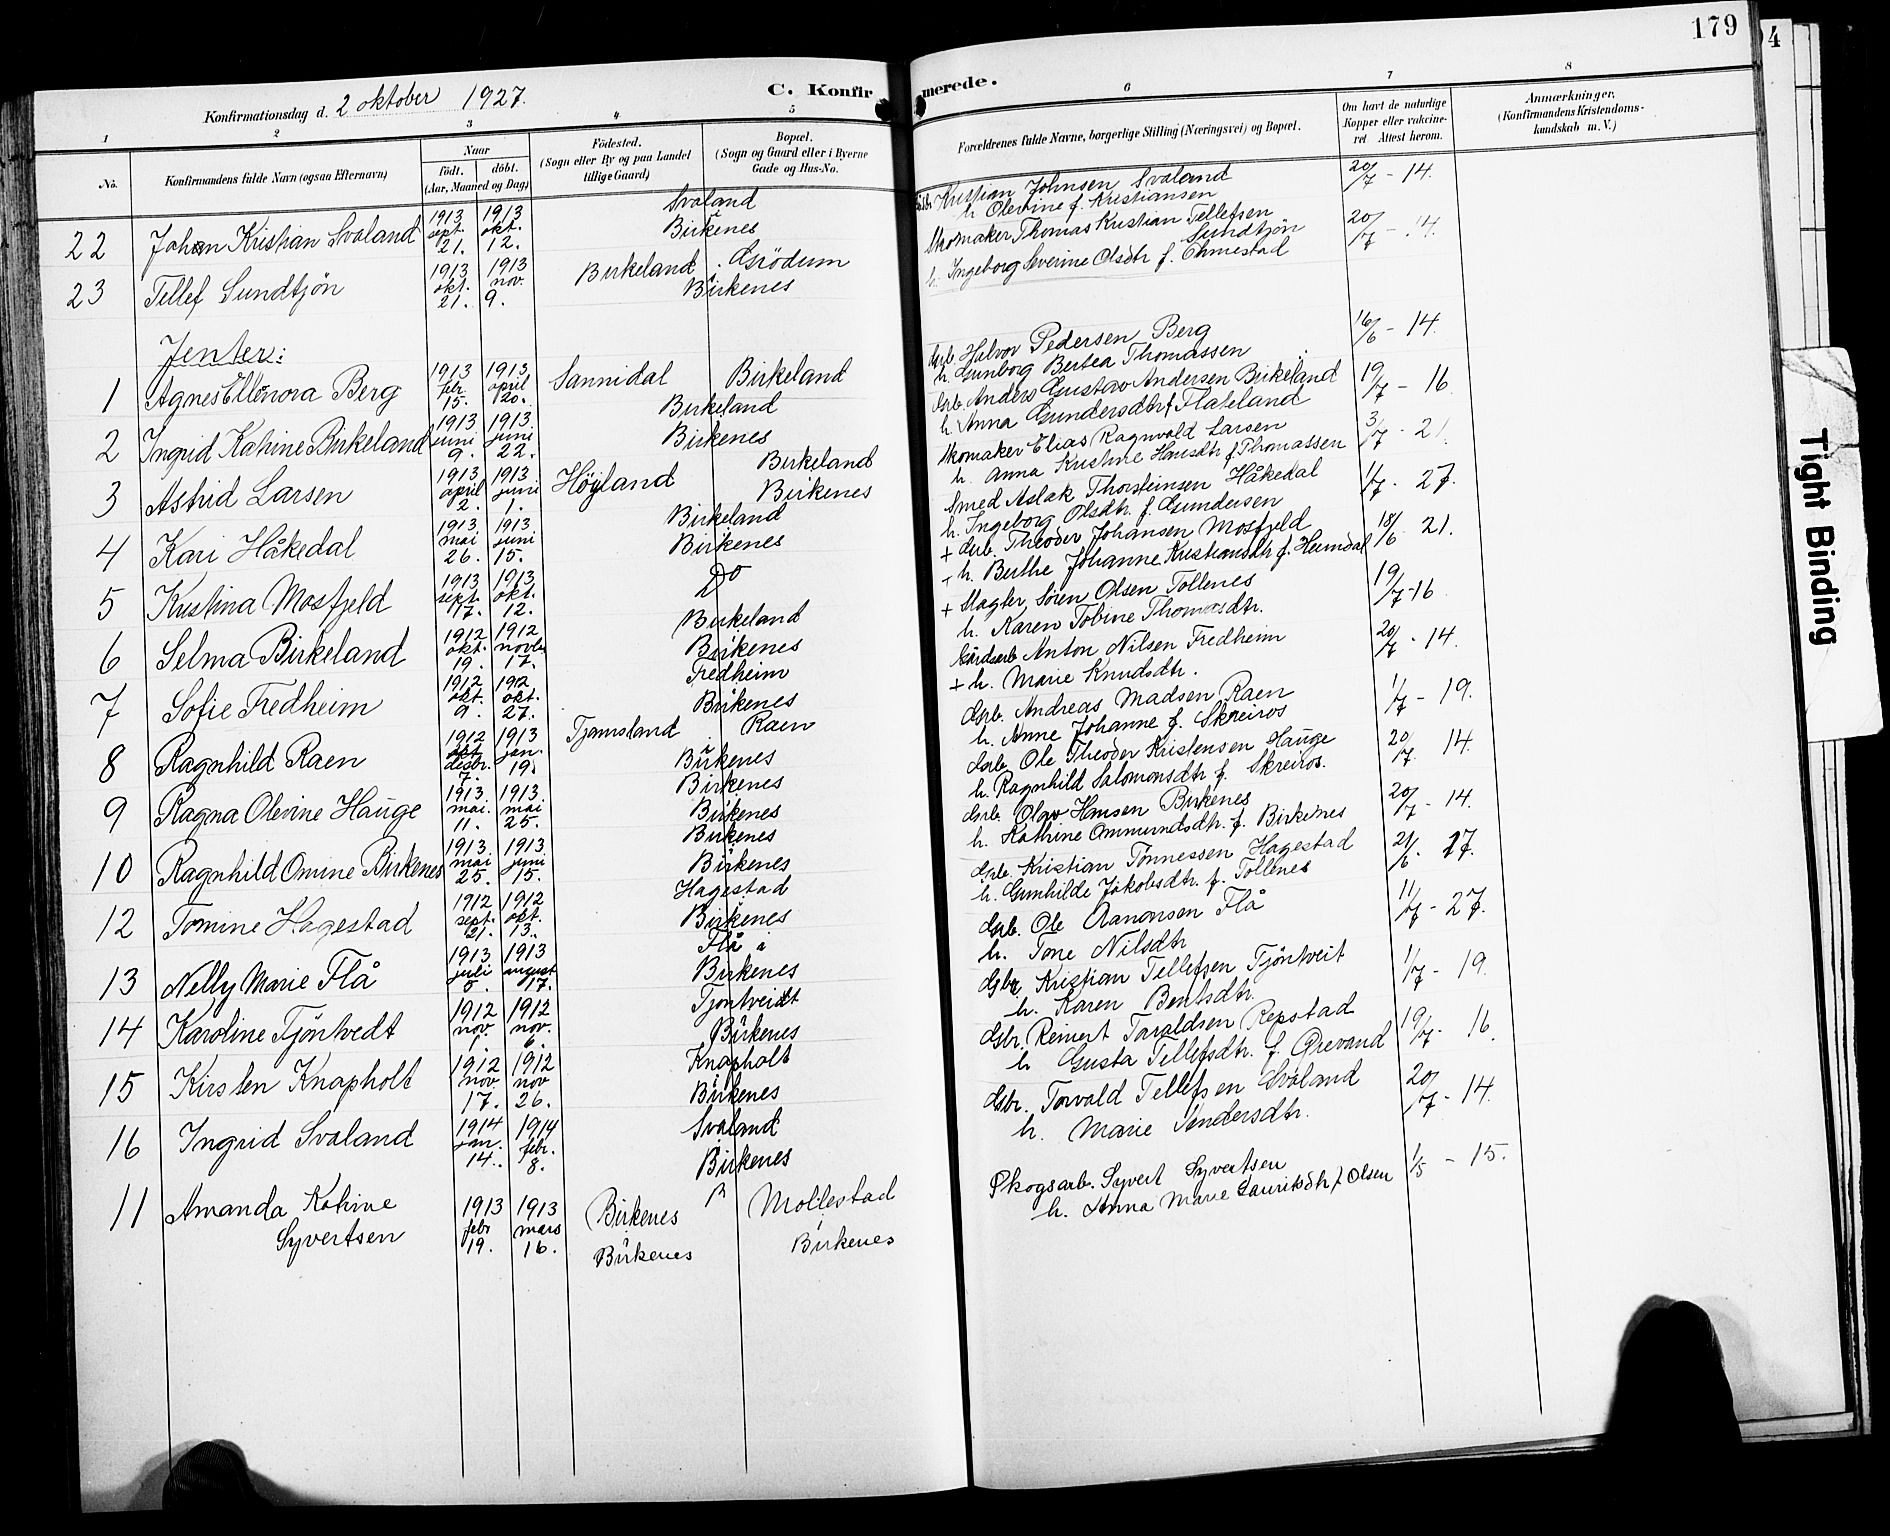 179
4
Konfirmationsdag d. 2 oktober 1927.
C. Konfirmerede.
1 2 3 4 5 6 7 8
No. Konfirmandens fulde Navn (ogsaa Efternavn)
Naar
födt. döbt.
(Aar, Maaned og Dag)
Födested.
(Sogn eller By og paa Landet
tillige Gaard)
Bopæl.
(Sogn og Gaard eller i Byerne
Gade og Hus-No.
Forældrenes fulde Navne, borgerlige Stilling (Næringsvei) og Bopæl.
Om havt de naturlige
Kopper eller vaccine-
ret. Attest herom.
Anmærkninger,
(Konfirmandens Kristendoms-
kundskab m. V.)
22 Johan Kristian Svaland 1913 sept. 21. 1913 okt. 12. Svaland Birkenes
Kristian Johnsen Svaland 20/7 - 14.
h. Olevine f. Kristiansen
23 Tellef Sundtjön 1913 okt. 21. 1913 nov. 9. Birkeland Grödum Birkenes
Skomaker Thomas Kristian Tellefsen Sundtjön 20/7 - 14.
h. Ingeborg Severine Olsdtr f. Ohmestad
Jenter:
1 Agnes Ellenora Berg 1913 febr. 15. 1913 april 20. Sannidal Birkeland
Grb. Halvor Pedersen Berg 16/6 - 14.
h. Gunborg Bertea Thomassen
2 Ingrid Katrine Birkeland 1913 juni 9. 1913 juni 22. Birkeland Birkenes
Grb. Anders Gustav Andersen Birkeland 19/7 - 16
h. Anna Gundersdtr f. Flateland
3 Astrid Larsen 1913 april 2. 1913 juni 1. Höyland Birkeland Birkenes
Skomaker Elias Ragnvald Larsen 3/7 - 21.
h. Anna Kristine Hansdtr f. Thomassen
4 Kari Håkedal 1913 mai 26. 1913 juni 15. Birkeland Birkenes
Smed Aslak Thorsteinsen Håkedal 1/7. 27.
h. Ingeborg Olsdtr. f. Gundersen
5 Kristina Mosfjeld 1913 sept. 17. 1913 okt. 12. Do
+ Grb. Theodor Johansen Mosfjeld 18/6 - 21.
+ h. Berthe Johanne Kristiansdtr f. Heimdal
6 Selma Birkeland 1912 okt. 19. 1912 novbr 17. Birkeland Birkenes
+ Slagter Sören Olsen Tollenes 19/7-16
h. Karen Tobine Thomasdtr.
7 Sofie Fredheim 1912 okt. 9. 192 okt. 27. Fredheim Birkenes
Gårdsarb Anton Nilsen Fredheim 20/7 - 14.
+ h. Marie Knudsdtr.
8 Ragnhild Raen 1912 desbr. 7. 1913 jan. 19. Tjamsland Raen Birkenes
Gsb. Andreas Madsen Raen 1/7 - 19.
h. Anne Johanne f. Skreiros
9 Ragna Olevine Hauge 1913 mai. 11. 1913 mai 25. Birkenes Birkenes
Gsb. Ole Theodor Kristensen Hauge 20/7. 14.
h. Ragnhild Salomonsdtr f. Skreiros.
10 Ragnhild Omine Birkenes 1913. mai 25. 1913. juni 15. Birkenes Birkenes
Gsb. Olav Hansen Birkenes 20/7 - 14.
h. Kathine Ommundsdtr. f. Birkenes
12 Tomine Hagestad 1912 sept. 21. 1912 okt. 13. Hagestad Birkenes
Gsb. Kristian Tönnessen Hagestad 21/6. 27.
h. Gunhilde Jakobsdtr. f. Tollenes
13 Nelly Marie Flå 1913 juli 5. 1913 august 17. Flå i Birkenes
Gsb. Ole Aanonsen Flå 11/7 - 27.
h. Tone Nilsdtr
14 Karoline Tjöntvedt 1912 nov. 1. 1912 nov. 6. Tjöntveidt Birkenes
Gbr. Kristian Tellefsen Tjöntveit 1/7 - 19.
h. Karen Bentsdtr.
15 Kirsten Knapholt 1912 nov. 17. 1912 nov 26. Knapholt Birkenes
Gbr. Reinert Taraldsen Repstad 19/7. 16.
h Gusta Tellefsdtr. f. Örevand
16 Ingrid Svaland 1914 jan. 14. 1914 febr. 8. Svaland Birkenes
Gbr. Torvald Tellefsen Svaland 20/7 - 14.
h. Marie Sandersdtr.
11 Amanda Katrine Syvertsen 1913 febr 19. 1913 mars 16. Birkenes Birkenes Mollestad Birkenes
Skogsarb. Syvert Syvertsen 1/5 - 15.
h. Anna Marie Lauritsdtr f Olsen
Tight Binding